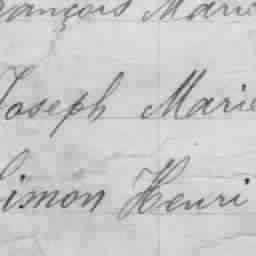 François Marie
Joseph Marie
Simon Henri